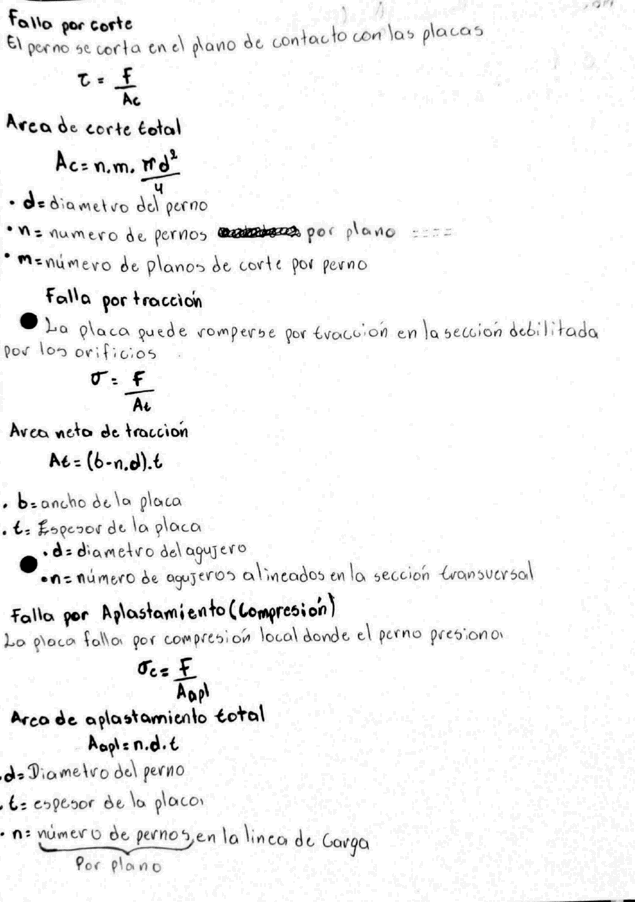 Falla por corte
El perno se corta en el plano de contacto con las placas
τ = F/Ac
Area de corte total
Ac = n.m. πd²/4
• d = diametro del perno
• n = numero de pernos por plano
• m = número de planos de corte por perno
Falla por tracción
La placa puede romperse por tracción en la sección debilitada
por los orificios
σ = F/At
Area neta de tracción
At = (b-n.d).t
• b = ancho de la placa
• t = Espesor de la placa
• d = diametro del agujero
• n = número de agujeros alineados en la sección transversal
Falla por Aplastamiento (Compresión)
La placa falla por compresión local donde el perno presiona
σc = F/Aapl
Area de aplastamiento total
Aapl = n.d.t
• d = Diametro del perno
• t = espesor de la placa
• n = número de pernos, en la linea de Carga
Por plano